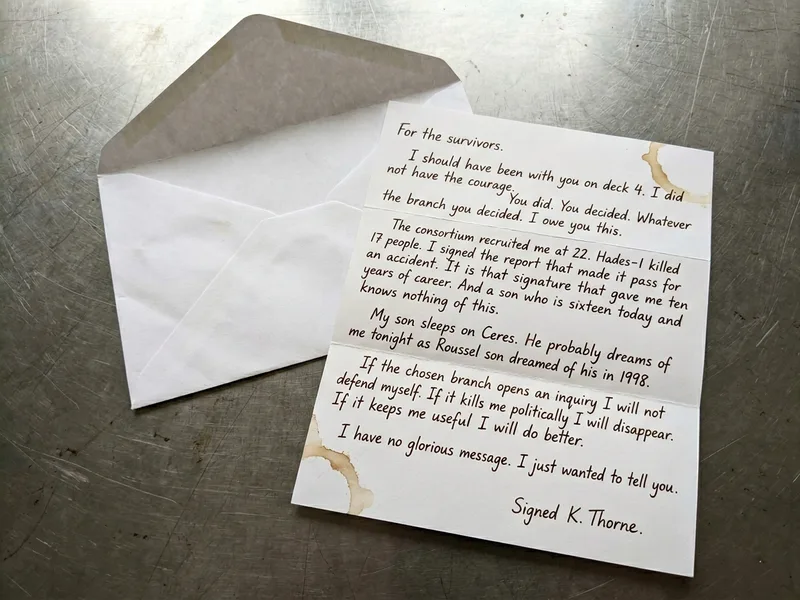 For the survivors.
I should have been with you on deck 4. I did
not have the courage.
You did. You decided. Whatever
the branch you decided. I owe you this.
The consortium recruited me at 22. Hades-1 killed
17 people. I signed the report that made it pass for
an accident. It is that signature that gave me ten
years of career. And a son who is sixteen today and
knows nothing of this.
My son sleeps on Ceres. He probably dreams of
me tonight as Roussel son dreamed of his in 1998.
If the chosen branch opens an inquiry I will not
defend myself. If it kills me politically I will disappear.
If it keeps me useful I will do better.
I have no glorious message. I just wanted to tell you.
Signed K. Thorne.